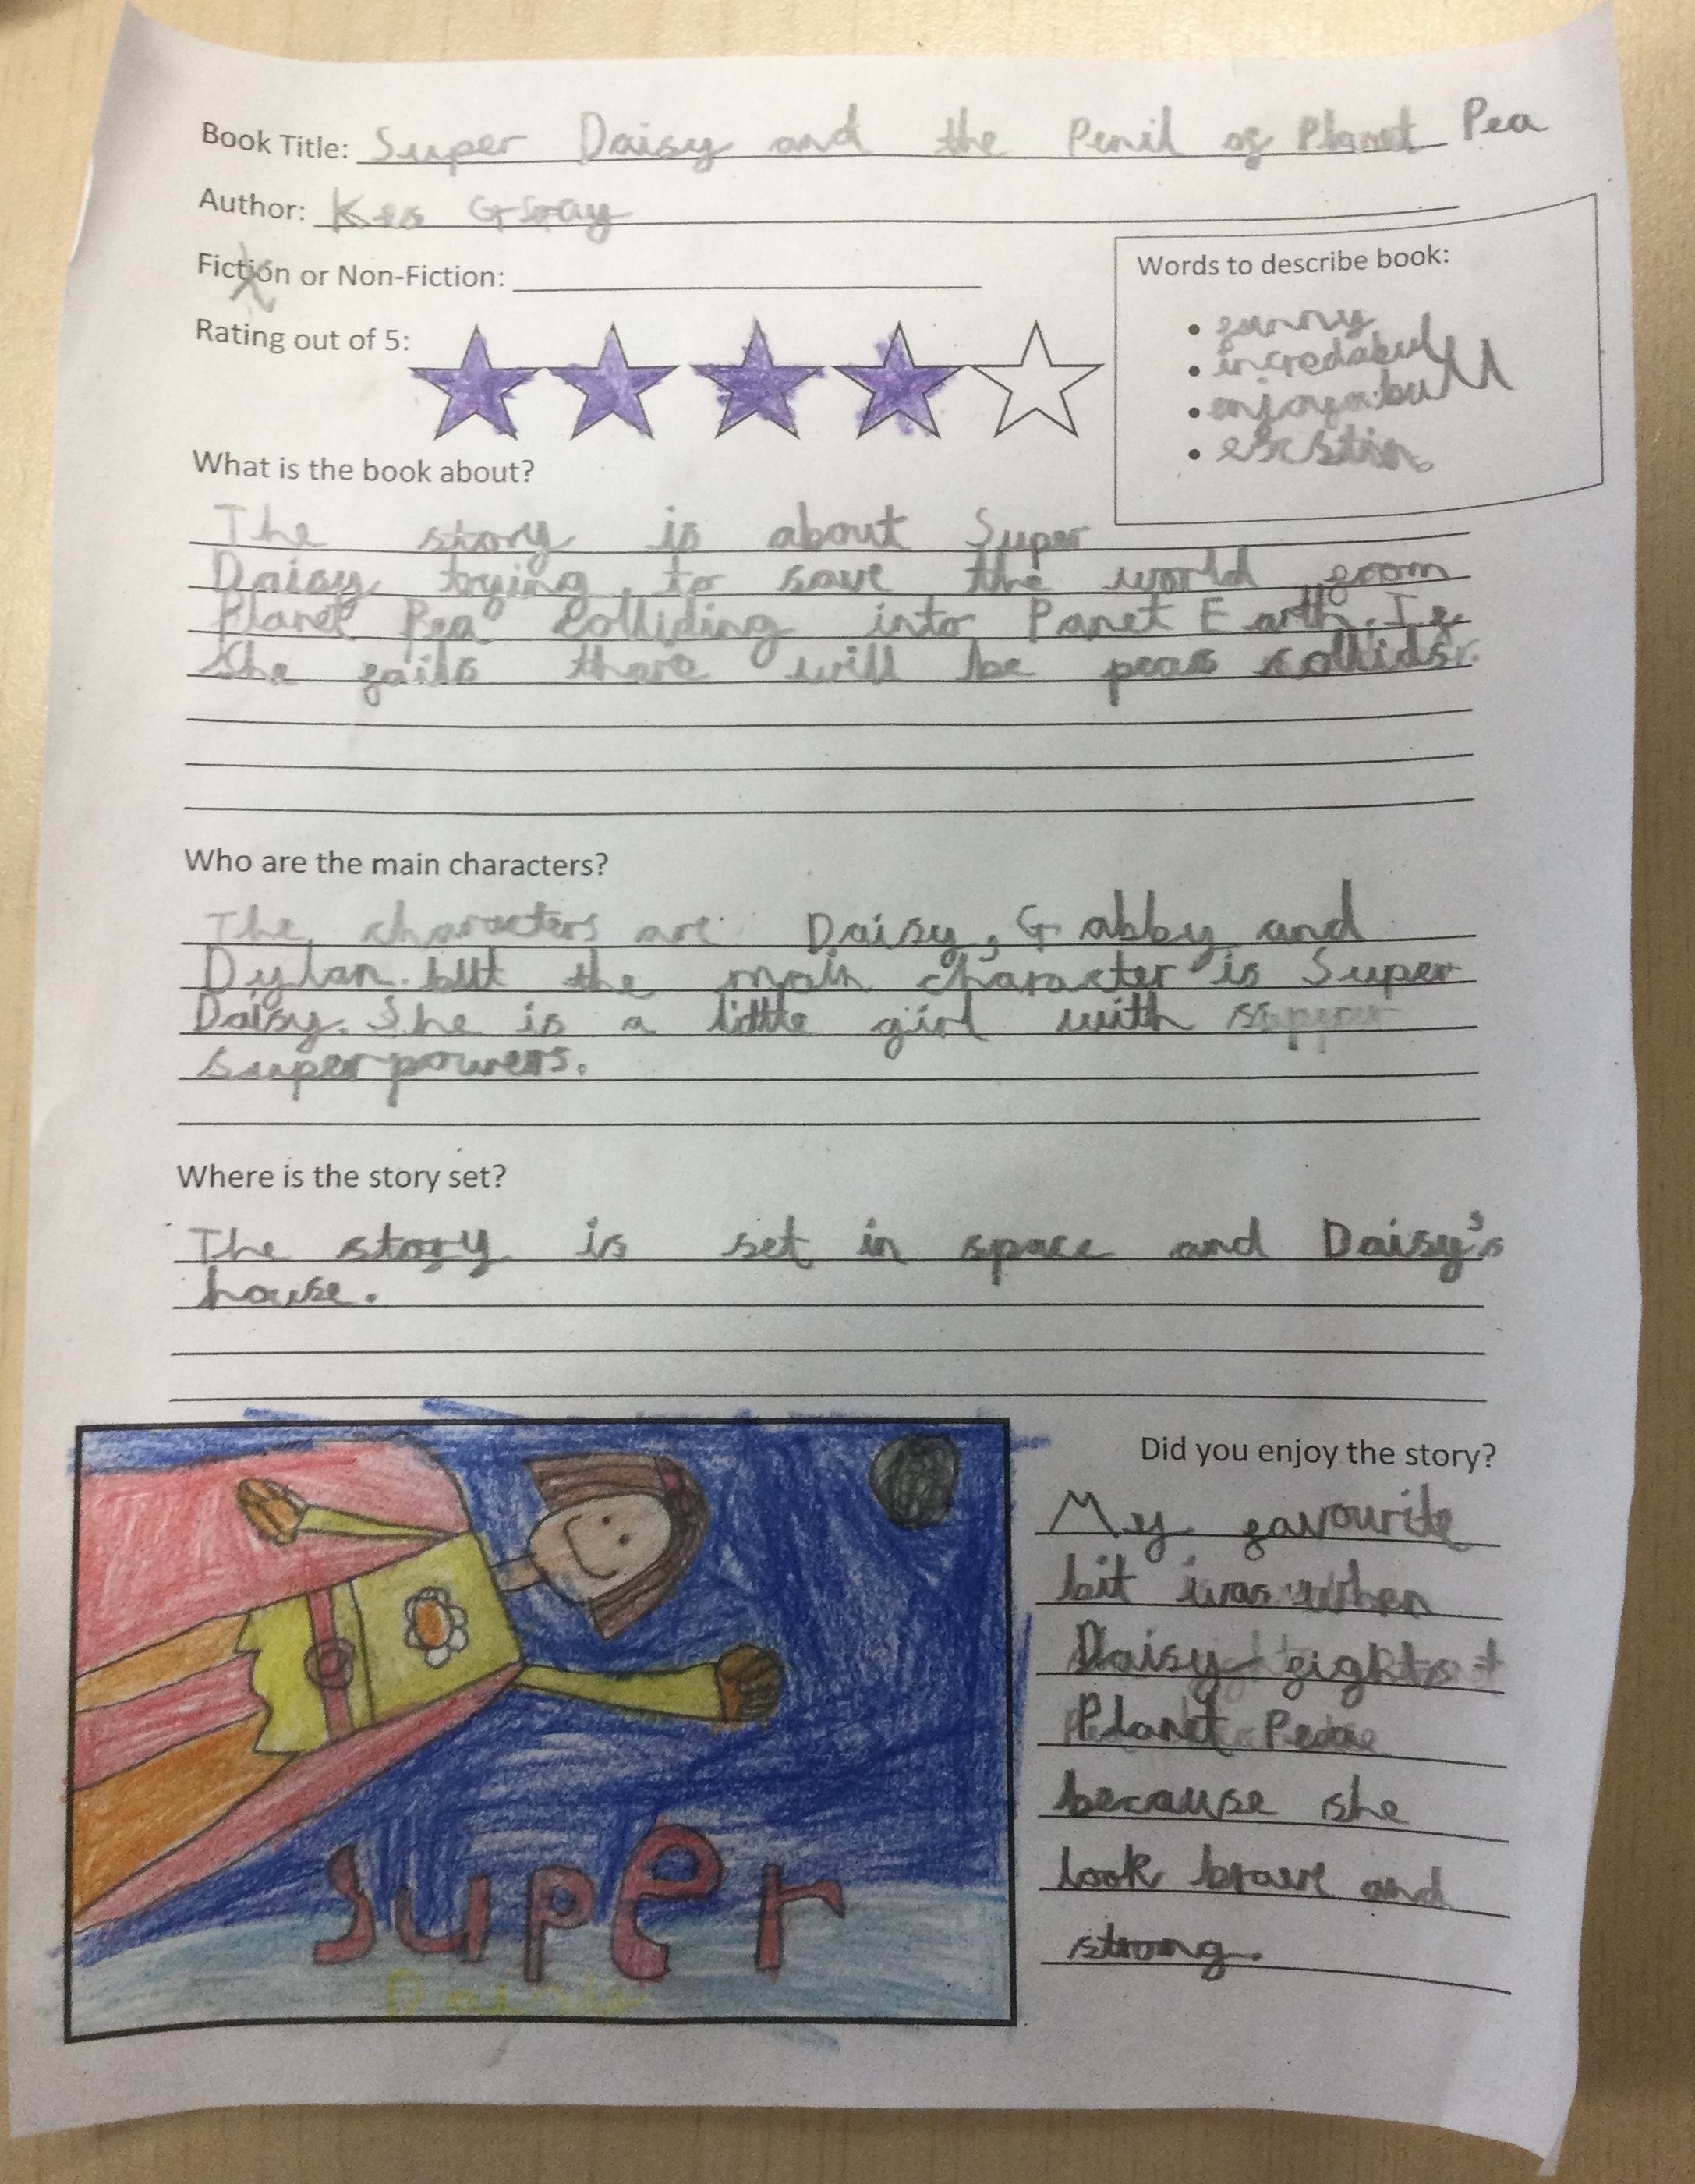 Book Title: Super Daisy and the Peril of Planet Pea
Author: Kes Gray
Fiction or Non-Fiction:
Rating out of 5:
Words to describe book:
• funny
• incredabul
• enjoyabul
•
What is the book about?
The story is about Super
Daisy trying to save the world from
Planet Pea colliding into Panet Earth. If
She fails there will be peas collids.
Who are the main characters?
The characters are Daisy, Gabby and
Dylan. but the main character is Super
Daisy. She is a little girl with super
superpowers.
Where is the story set?
The story is set in space and Daisy's
house.
Did you enjoy the story?
My favourite
bit was when
Daisy fights
Planet Pea
because she
look brave and
strong.
Super
Daisy